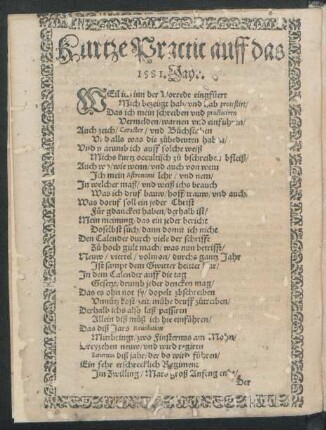 Kurtze Practic auff das
1581. Jar.
WEil ich inn der Vorrede eingefürt
Mich bezeigt hab vnd hab protestirt/
Das ich mein schreiben vnd practiciren
Vermelden/warnen vnd einführen/
Auch zeich/Caracter/vnd Büchstaben
Vnd alls was die zůbedeuten haben/
Vnd warumb ich auff solche weiß
Michs kurtz occultisch zů bschreiben bfleiß/
Auch wo/wie wenn/vnd auch von wem
Ich mein Astronomi lehr/vnd nem/
In welcher maß/vnd weiß ichs brauch
Was ich drauf bauw/hoff/trauw/vnd auch
Was dorauf soll ein jeder Christ
Für gdancken haben/derhalb ist/
Mein meinung/das ein jeder bericht
Doselbst such/dann domit ich nicht
Den Calender durch viele der schrifft
Zů hoch gült mach/was nun betrifft/
Neuw/viertel/volmon/durchs gantz Jahr
Ist sampt dem Gwitter
In dem Calender auff die tag
Gesetzt/drumb jeder dencken mag/
Das es ohn not sy/dopelt zbschreiben
Vnnütz kost/zeit/mühe drauff zůtreiben/
Derhalb ichs also laß passiern
Allein diß můß ich hie einführen/
Das diß Jars Reuolution
Mitbringt/zwo Finsternus am Mohn/
Vorzychen neuw/vnd wird regiern
Saturnus diß jahr/der do wird führen/
Ein sehr erschrecklich Regiment
Im Zwilling/Mars groß Anfeng
Der